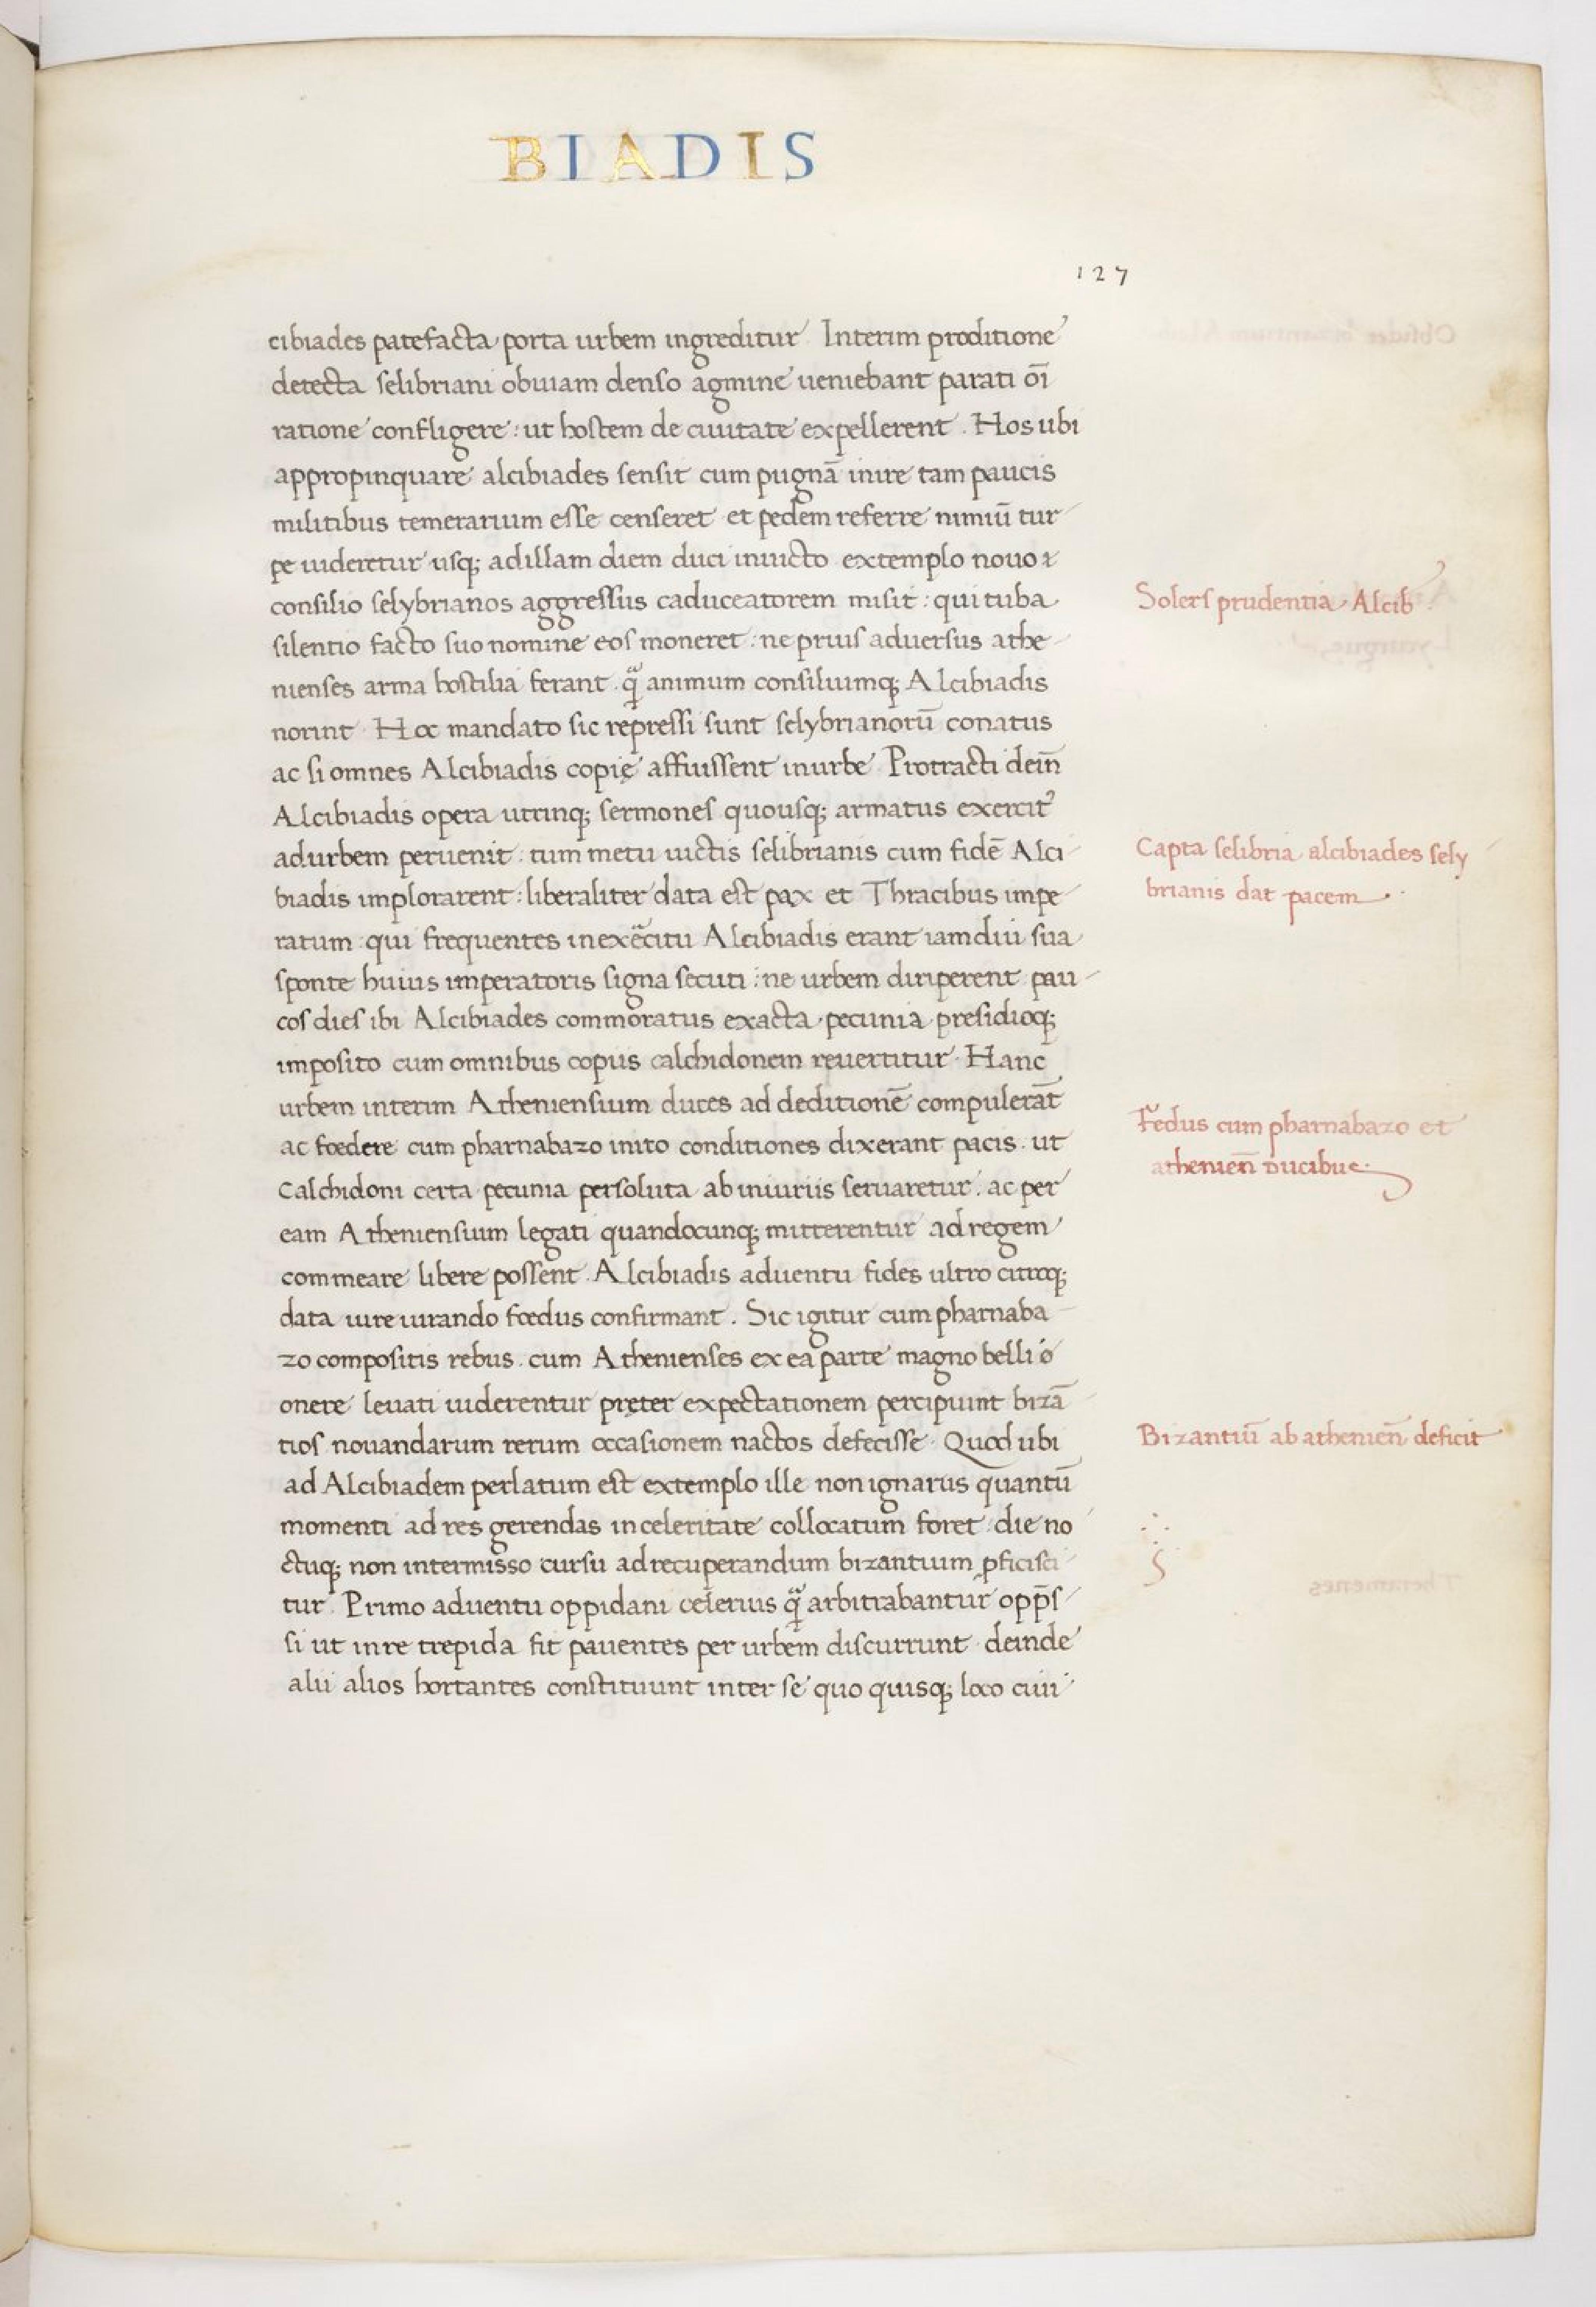 BIADIS
127
cibiades patefacta porta urbem ingreditur Interim proditione
detecta selibriani obuiam denso agmine ueniebant parati oi͞
ratione confligere: ut hostem de ciuitate expellerent. Hos ubi
appropinquare alcibiades sensit cum pugnā inire tam paucis
militibus temerarium esse censeret et pedem referre nimiū tur
pe uideretur usq; ad illam diem duci inuicto extemplo nouo
consilio selybrianos aggressus caduceatorem misit: qui tuba
Solers prudentia Alcib
silentio facto suo nomine eos moneret: ne prius aduersus athe
nienses arma hostilia ferant. qᷓ animum consiliumq; Alcibiadis
norint Hoc mandato sic repressi sunt selybrianorū conatus
ac si omnes Alcibiadis copię affuissent in urbe Protracti dein̄
Alcibiadis opera utrinq; sermones quousq; armatus exercit᾿
ad urbem peruenit: tum metu uictis selibrianis cum fidē Alci
Capta selibria alcibiades sely
biadis implorarent: liberaliter data est pax et Thracibus impe
brianis dat pacem
ratum: qui frequentes in exercitu Alcibiadis erant iam diu sua
sponte huius imperatoris signa secuti: ne urbem diriperent pau
cos dies ibi Alcibiades commoratus exacta pecunia presidioq;
imposito cum omnibus copiis calchidonem reuertitur. Hanc
urbem interim Atheniensium duces ad deditionē compulerāt
Fedus cum pharnabazo et
ac foedere cum pharnabazo inito conditiones dixerant pacis. ut
athenien̄ ducibus
Calchidoni certa pecunia persoluta ab iniuriis seruaretur: ac per
eam Atheniensium legati quandocunq; mitterentur ad regem
commeare libere possent. Alcibiadis aduentu fides ultro citroq;
data iure iurando foedus confirmant. Sic igitur cum pharnaba
zo compositis rebus. cum Athenienses ex ea parte magno belli
onere leuati uiderentur pręter expectationem percipiunt bizā
tios nouandarum rerum occasionem nactos defecisse. Quod ubi
Bizantiū ab athenien̄ deficit
ad Alcibiadem perlatum est extemplo ille non ignarus quantū
momenti ad res gerendas in celeritate collocatum foret. die no
ctuq; non intermisso cursu ad recuperandum bizantium ꝓficisci
tur. Primo aduentu oppidani celerius qᷓ arbitrabantur opp̄s
si ut in re trepida fit pauentes per urbem discurrunt. deinde
alii alios hortantes constituunt inter se quo quisq; loco ciui